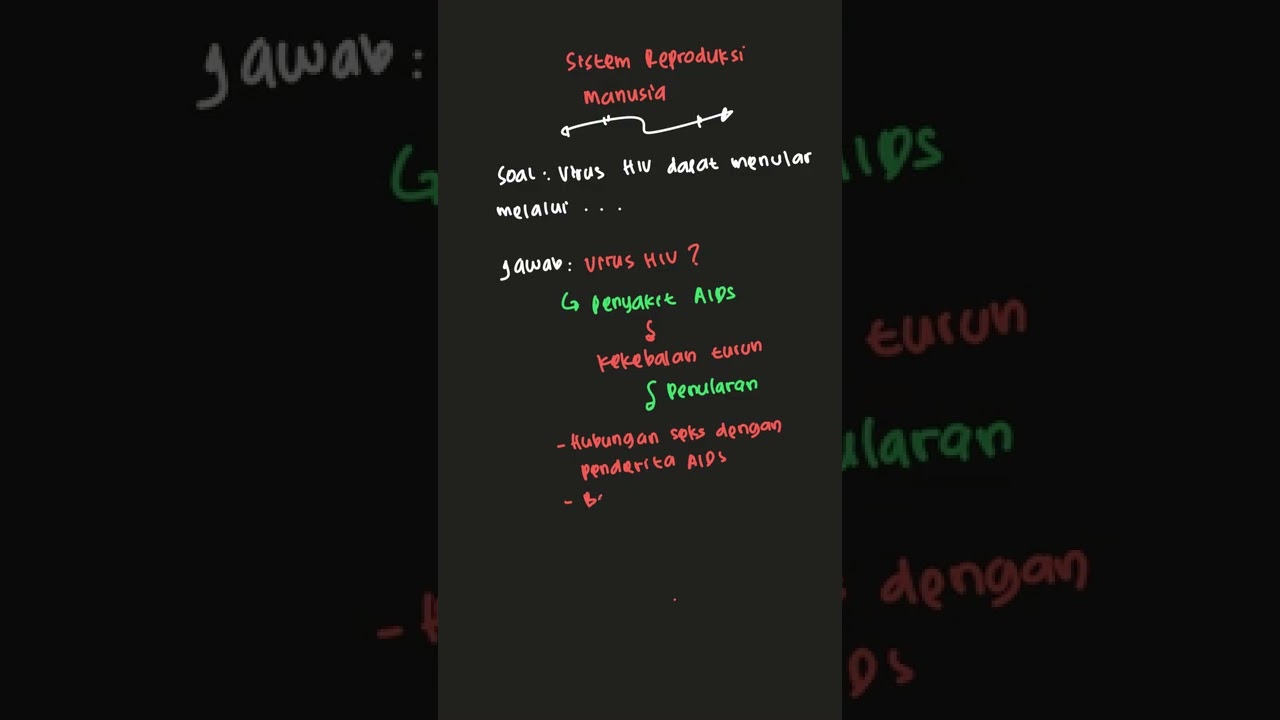 Sistem Reproduksi
Manusia
Soal : Virus HIV dapat menular
melalui . . .
Jawab : Virus HIV ?
Penyakit AIDS
Kekebalan turun
Penularan
- Hubungan seks dengan
penderita AIDS
- B
Jawab :
AIDS
turun
ularan
dengan
IDS